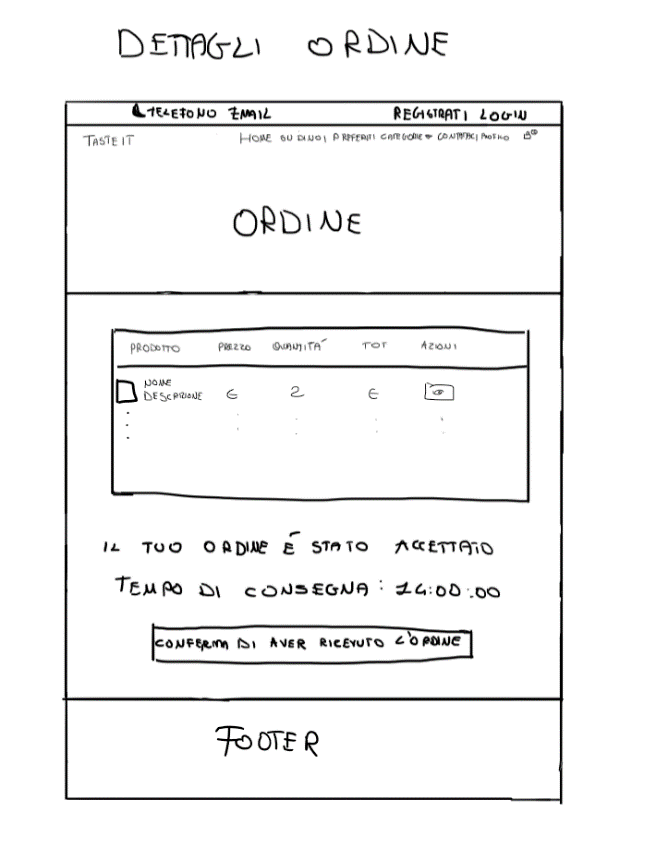 DETTAGLI ORDINE
TELEFONO EMAIL REGISTRATI LOGIN
TASTEIT HOME SU DI NOI PREFERITI CATEGORIE CONTATTACI PROFILO
ORDINE
PRODOTTO PREZZO QUANTITÀ TOT AZIONI
NOME
DESCRIZIONE € 2 €
IL TUO ORDINE È STATO ACCETTATO
TEMPO DI CONSEGNA: 14:00:00
CONFERMA DI AVER RICEVUTO L'ORDINE
FOOTER